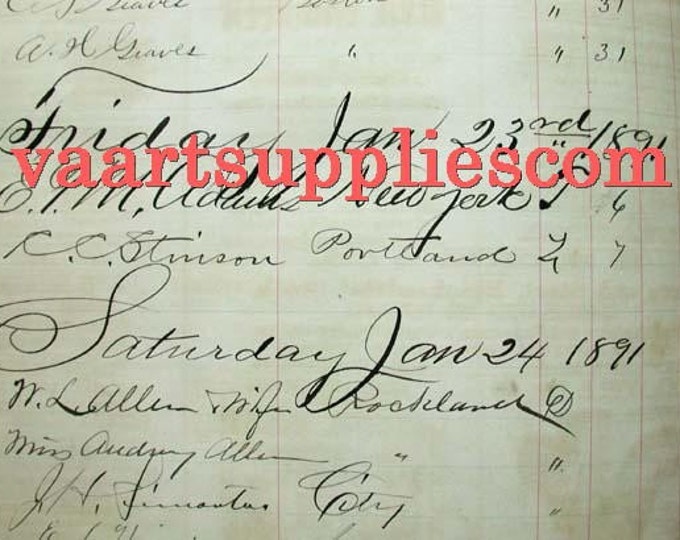 A. H. Graves " " 31
Friday Jan 23rd 1891
vaartsuppliescom
E. P. M. Adams New York 6
C. C. Stinson Portland 7
Saturday Jan 24 1891
W. L. Allen & Wife Rockland D
Miss Audrey Allen " "
J. H. Simonton City "